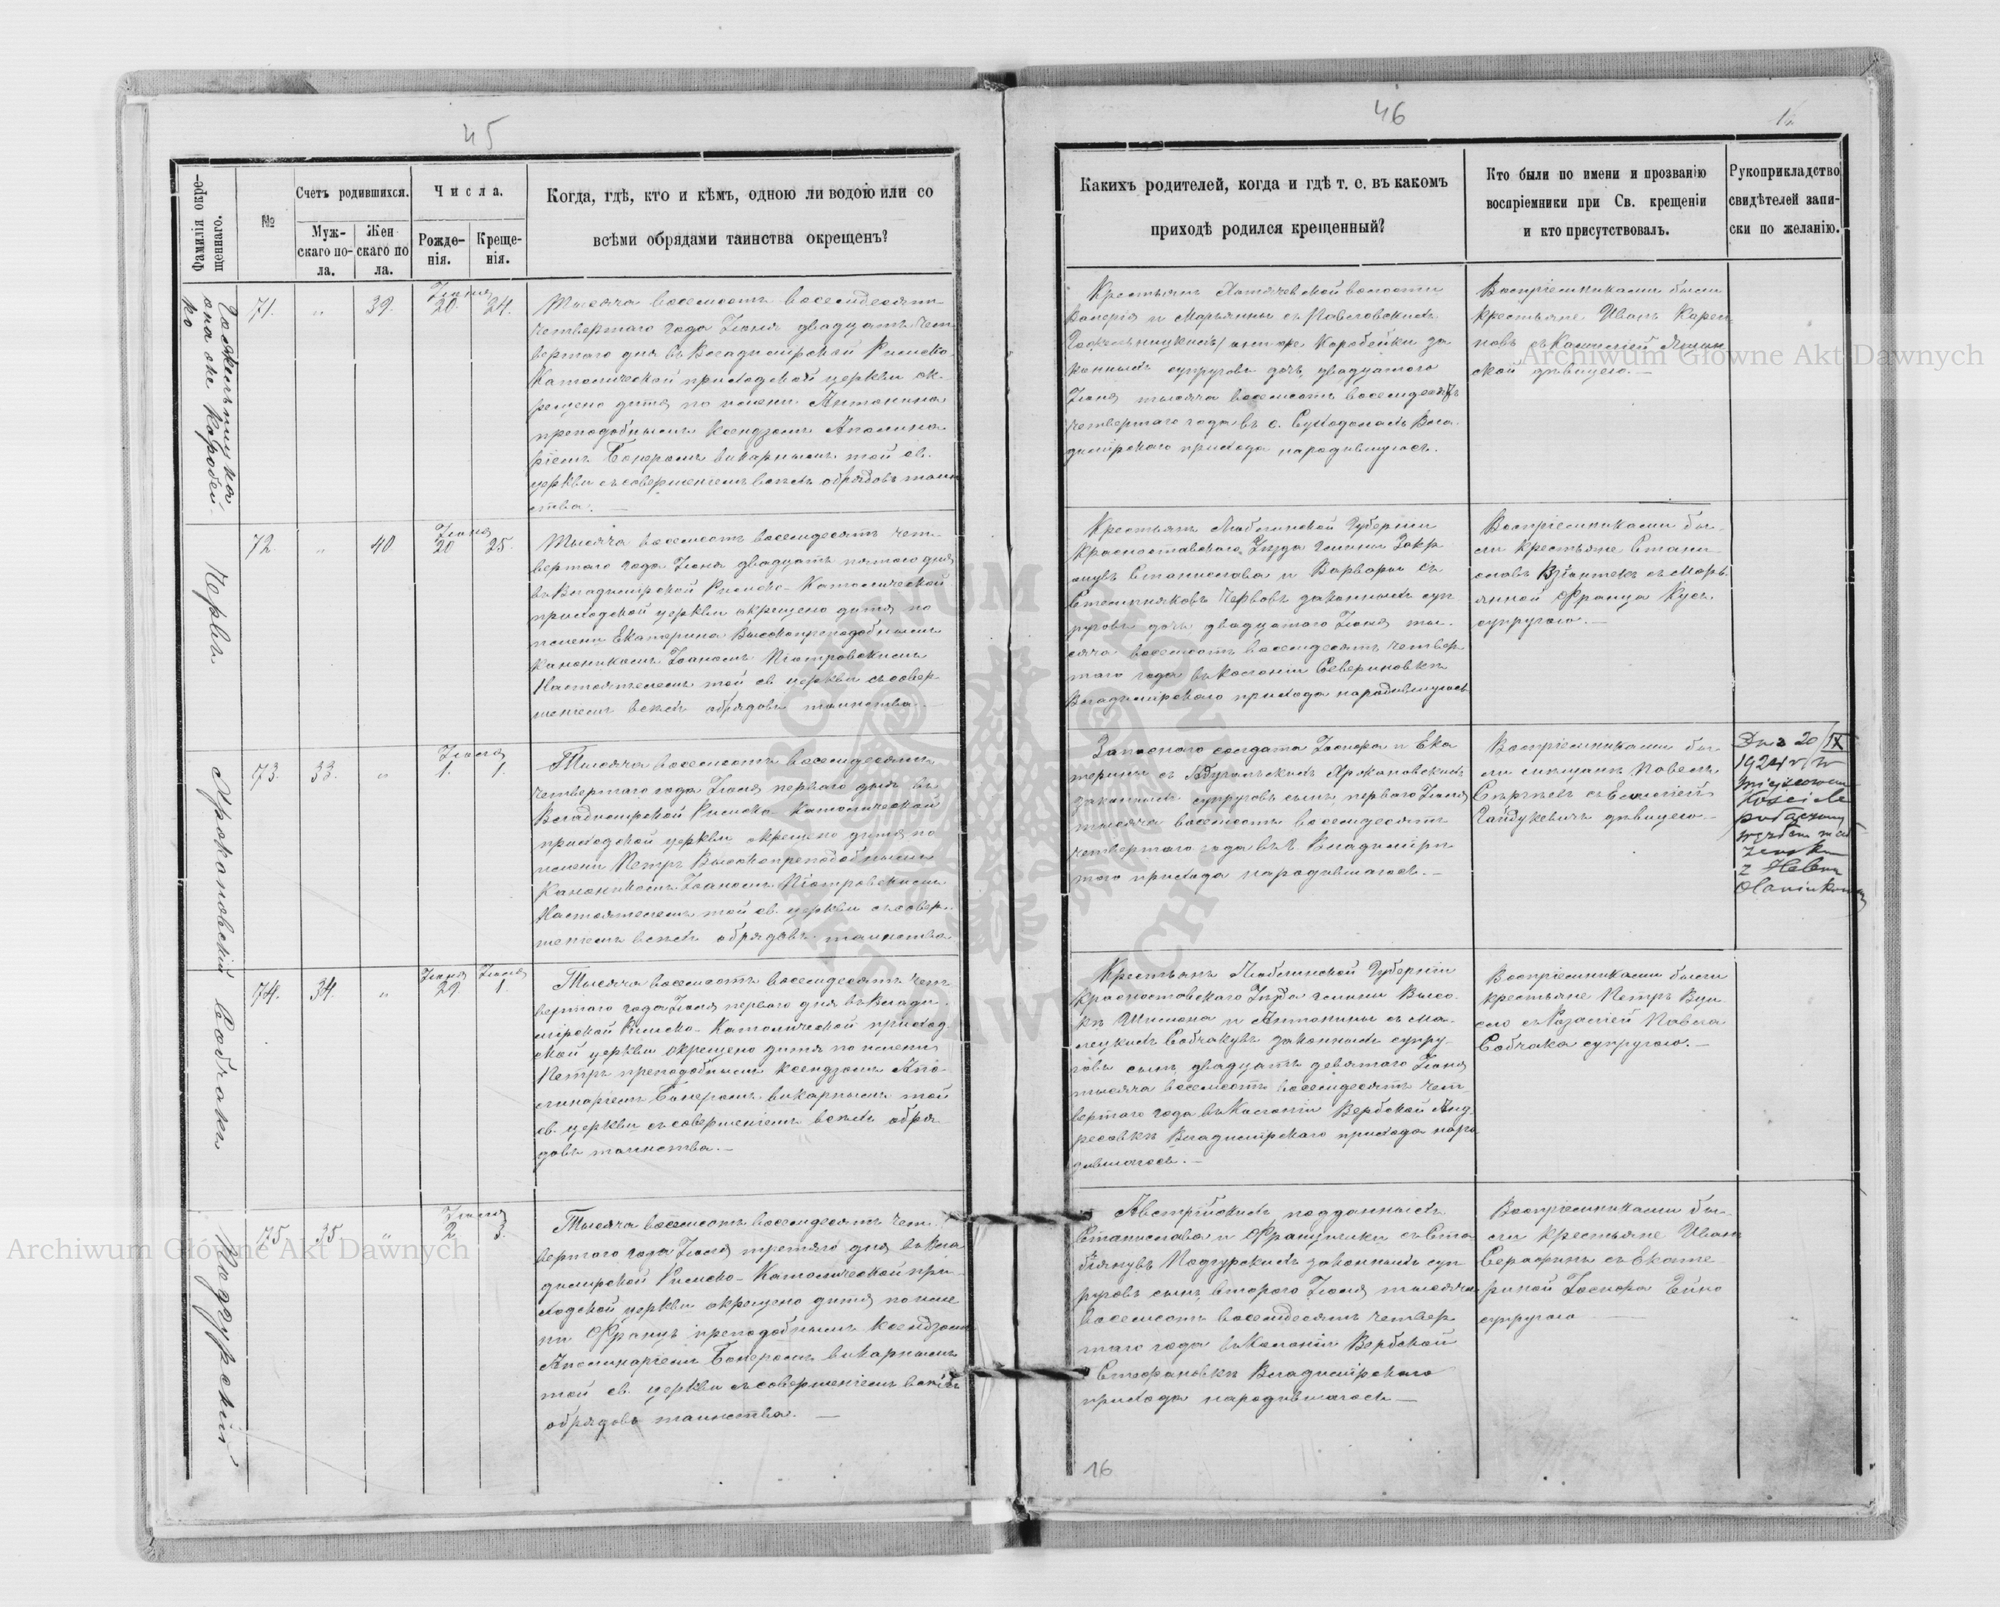 45
Фамилія окре-
щеннаго.
№
Счетъ родившихся.
Муж-
скаго по-
ла.
Жен
скаго по
ла.
Числа.
Рожде-
нія.
Креще-
нія.
Когда, гдѣ, кто и кѣмъ, одною ли водою или со
всѣми обрядами таинства окрещенъ?
71.
„
39.
Іюня
20. 24.
Тысяча восемьсотъ восемьдесятъ
четвертаго года Іюня двадцать чет
вертаго дня въ Владимірской Римско-
Католической приходской церкви ок-
рещено дитя по имени Антонина
преподобнымъ Ксендзомъ Аполина
ріемъ викарнымъ той св.
церкви съ совершеніемъ всѣхъ обрядовъ таин
ства.
72.
„
40
Іюня
20 25.
Червъ
Тысяча восемьсотъ восемьдесятъ чет-
вертаго года Іюня двадцать пятаго дня
въ Владимірской Римско-Католической
приходской церкви окрещено дитя по
имени Екатерина Высокопреподобнымъ
Каноникомъ Іоаномъ Піотровскимъ
Настоятелемъ той св. церкви съ совер-
шеніемъ всѣхъ обрядовъ таинства.
73.
33.
„
Іюля
1. 1.
Тысяча восемьсотъ восемьдесятъ
четвертаго года Іюля перваго дня въ
Владимірской Римско-Католической
приходской церкви окрещено дитя по
имени Петръ Высокопреподобнымъ
Каноникомъ Іоаномъ Піотровскимъ
Настоятелемъ той св. церкви съ совер-
шеніемъ всѣхъ обрядовъ таинства
74.
34.
„
Іюня Іюля
29. 1.
Собчакъ
Тысяча восемьсотъ восемьдесятъ чет
вертаго года Іюля перваго дня въ Влади-
мірской Римско-Католической приход
ской церкви окрещено дитя по имени
Петръ преподобнымъ Ксендзомъ Апо-
линаріемъ викарнымъ той
св. церкви съ совершеніемъ всѣхъ обря
довъ таинства.—
75
35
„
Іюля
2. 3.
Подгурскій
Тысяча восемьсотъ восемьдесятъ чет-
вертаго года Іюля третяго дня въ Вла
димірской Римско-Католической при-
ходской церкви окрещено дитя по име
ни Францъ преподобнымъ Ксендзомъ
Аполинаріемъ викарнымъ
той св. церкви съ совершеніемъ всѣхъ
обрядовъ таинства.—
46
Какихъ родителей, когда и гдѣ т. е. въ какомъ
приходѣ родился крещенный?
Кто были по имени и прозванію
воспріемники при Св. крещеніи
и кто присутствовалъ.
Рукоприкладство
свидѣтелей запи-
ски по желанію.
Крестьянъ волости
Валерія и Марьянны съ Павловскихъ
Коробейки за
конныхъ супруговъ дочь, двадцатого
Іюня тысяча восемьсотъ восемьдесятъ
четвертаго года въ с. Суходолахъ Вла
димірскаго прихода народившуюся.
Воспріемниками были
крестьяне Иванъ
ской дѣвицею.—
Крестьянъ Люблинской Губерніи
Красноставскаго Уѣзда гмины
Станислава и Варвары съ
Червовъ законныхъ суп
руговъ дочь двадцатого Іюня ты-
сяча восемьсотъ восемьдесятъ четвер
таго года въ колоніи Севериновкѣ
Владимірскаго прихода народившуюся
Воспріемниками бы-
ли крестьяне Стани-
славъ съ Марь
янной Франца Кусь
супругою.—
Запаснаго солдата Іосифа и Ека
терины съ
законныхъ супруговъ сынъ, перваго Іюля
тысяча восемьсотъ восемьдесятъ
четвертаго года въ г. Владимірѣ
того прихода народившагося.—
Воспріемниками бы-
ли мѣщане Павелъ
съ
Гайдукевичъ дѣвицею.—
Dnia 20/IX
1924 r. w
miejscowym
Kościele
z Heleną
Крестьянъ Люблинской Губерніи
Красноставскаго Уѣзда гмины Высо-
кѣ Шимона и Антонины съ Ма-
лецкихъ Собчаковъ законныхъ супру-
говъ сынъ, двадцать девятаго Іюня
тысяча восемьсотъ восемьдесятъ чет
вертаго года въ Колоніи Вербской Анд-
реевкѣ Владимірскаго прихода наро
дившагося.—
Воспріемниками были
крестьяне Петръ
съ Розаліей Павла
Собчака супругою.—
Австрійскихъ подданныхъ
Станислава и Францишки съ
Подгурскихъ законныхъ суп
руговъ сынъ, второго Іюля тысяча
восемьсотъ восемьдесятъ четвер
таго года въ Колоніи Вербской
Стефановкѣ Владимірскаго
прихода народившагося—
Воспріемниками бы-
ли крестьяне Иванъ
Серафинъ съ Екате-
риной Іосифа
супругою
16
Archiwum Główne Akt Dawnych
Archiwum Główne Akt Dawnych